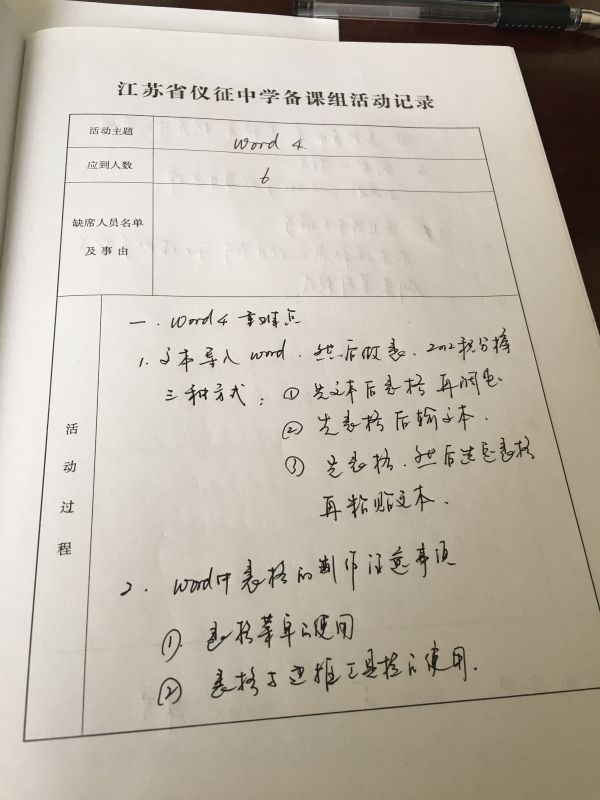 江苏省仪征中学备课组活动记录
活动主题
word 4.
应到人数
6
缺席人员名单
及事由
活动过程
一. word 4 重难点
1. 文本导入 word. 然后做表. 2012积分榜
三种方式: ① 先文本后表格 再调整
② 先表格后输文本.
③ 先表格. 然后选定表格
再粘贴文本.
2. word中表格的制作注意事项
① 表格菜单的使用
② 表格与边框工具栏的使用.